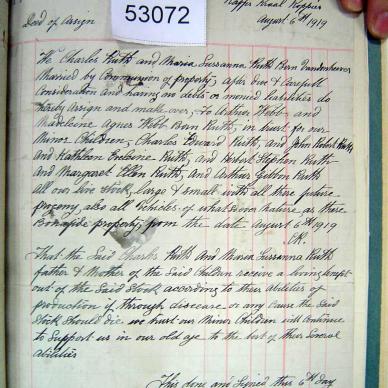 53072
Kaffir Kraal Koppies
Deed of Assign August 6th 1919
We Charles Ruth and Maria Susanna Ruth Born
Married by Communion of property, after due & Carefull
Consideration and having no debts or monied liabilities do
hereby Assign and make over, to Arthur Webb and
Madeleine Agnes Webb Born Ruth, in trust for our
Minor Children, Charles Edward Ruth, and John Robert Ruth
and Kathleen Ruth, and Herbert Stephen Ruth
and Margaret Ellen Ruth, and Arthur Ruth
all our live stock, large & small with all there future
progeny, also all vehicles of what soever nature, as there
Bonafide property, from the date August 6th 1919
CR.
That the Said Charles Ruth and Maria Susanna Ruth
father & Mother of the Said Children receive a living
out of the Said Stock according to their abilities of
production if through disease or any cause the Said
Stock should die we trust our Minor Children will continue
to Support us in our old age to the best of their Several
abilities
This done and Signed this 6th Day